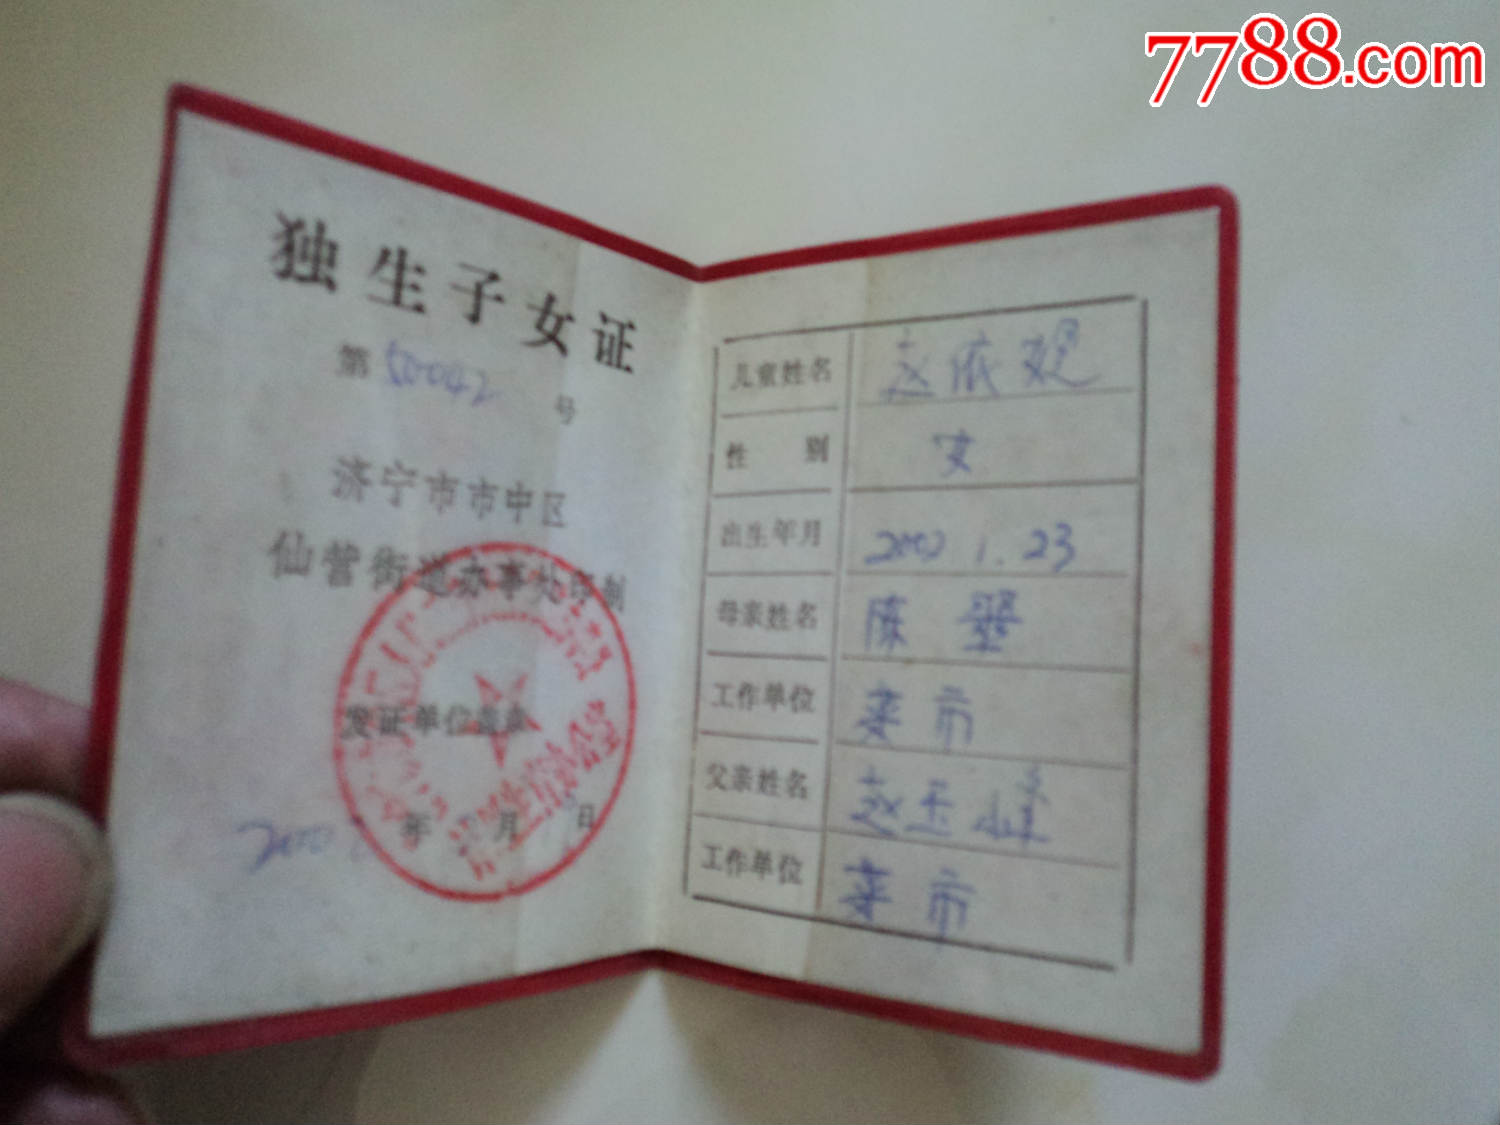 7788.com
独生子女证
第 50042 号
济宁市市中区
仙营街道办事处印制
发证单位盖章
年 月 日
儿童姓名 赵依
性别 女
出生年月 2002.1.23
母亲姓名 陈
工作单位 菜市
父亲姓名 赵玉峰
工作单位 菜市